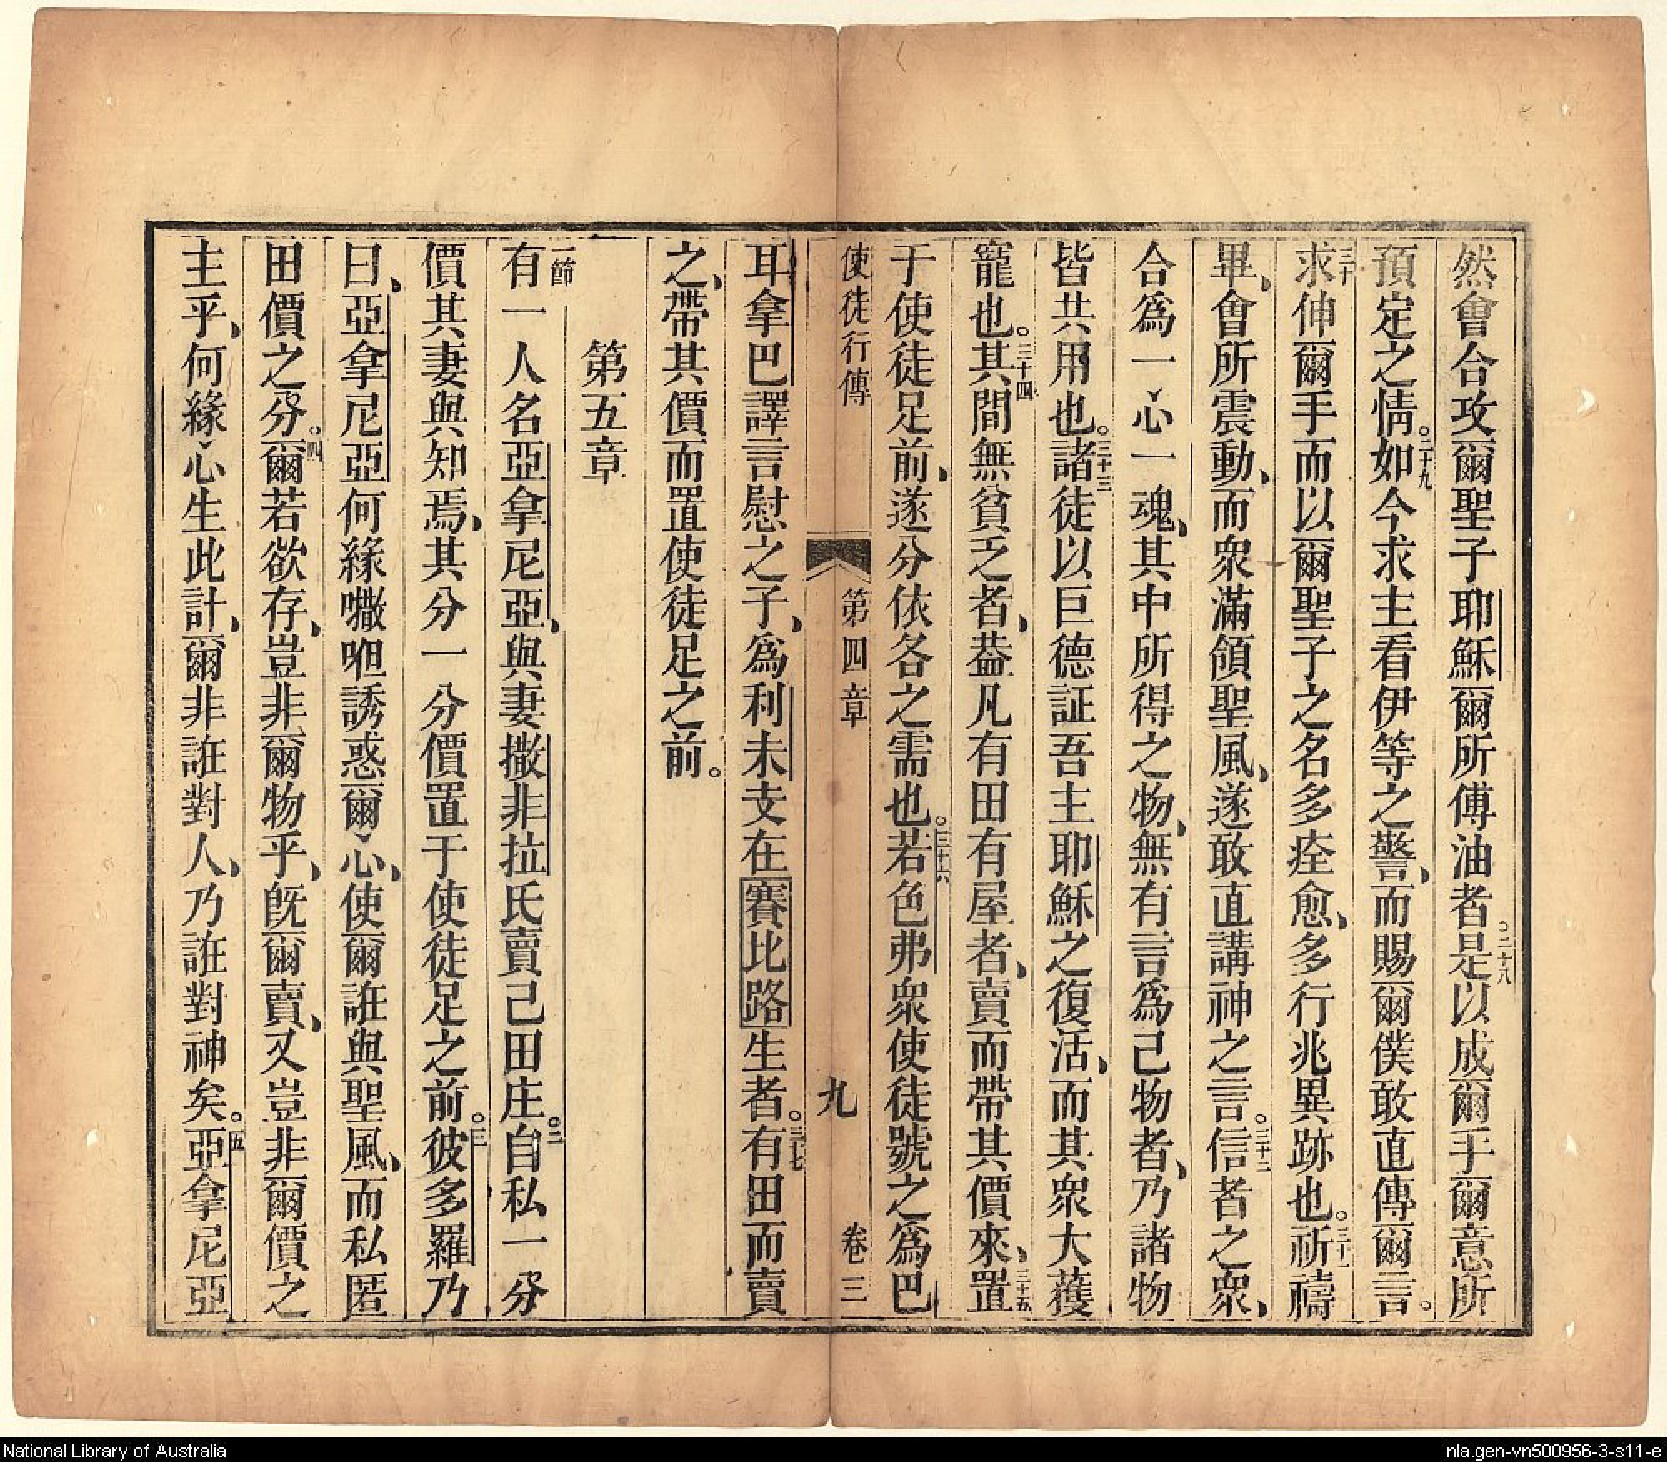 然會合攻爾聖子耶穌爾所傅油者。二十八是以成爾手爾意所
預定之情。二十九如今求主看伊等之警、而賜爾僕敢直傳爾言。
三十求伸爾手而以爾聖子之名多痊愈、多行兆異跡也。三十一祈禱
畢、會所震動、而衆滿領聖風、遂敢直講神之言。三十二信者之衆、
合爲一心一魂、其中所得之物、無有言爲己物者、乃諸物
皆共用也。三十三諸徒以巨德証吾主耶穌之復活、而其衆大蒦
寵也。三十四其間無貧乏者、葢凡有田有屋者、賣而帶其價來、三十五置
于使徒足前、遂分依各之需也。三十六若色弗衆使徒號之爲巴
使徒行傳 第四章 九 卷三
耳拿巴譯言慰之子、爲利未支在賽比路生者。三十七有田而賣
之、帶其價而置使徒足之前。
第五章
一節有一人名亞拿尼亞、與妻撒非拉氏賣己田庄。二自私一分
價其妻與知焉、其分一分價置于使徒足之前。三彼多羅乃
曰、亞拿尼亞何緣㘔呾誘惑爾心、使爾誑與聖風、而私匿
田價之分。四爾若欲存、豈非爾物乎、旣爾賣、又豈非爾價之
主乎、何緣心生此計、爾非誑對人、乃誑對神矣。五亞拿尼亞
National Library of Australia
nla.gen-vn500956-3-s11-e